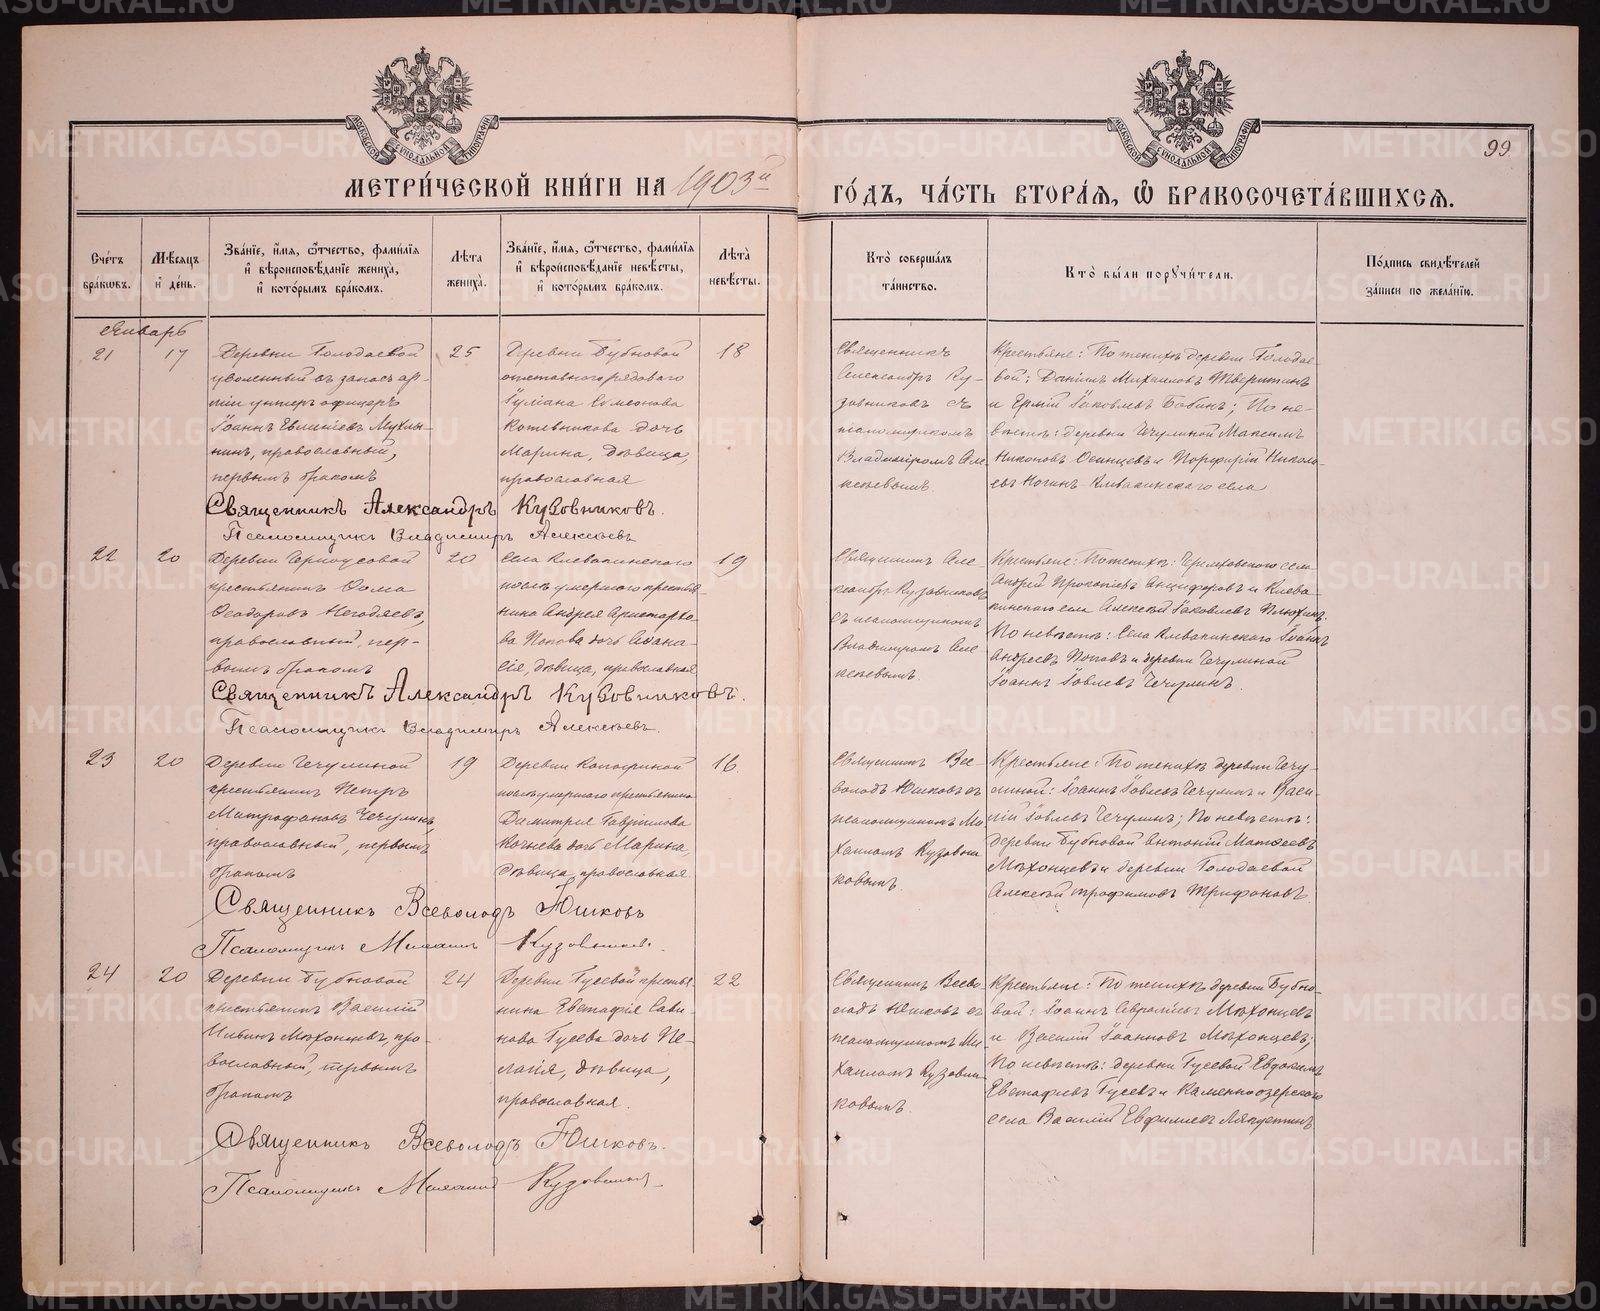 МЕТРИЧЕСКОЙ КНИГИ НА 1903й ГОДЪ, ЧАСТЬ ВТОРАЯ, Ѡ БРАКОСОЧЕТАВШИХСЯ.
99
Счетъ браковъ.
Мѣсяцъ и день.
Званіе, имя, отчество, фамилія и вѣроисповѣданіе жениха, и которымъ бракомъ.
Лѣта жениха.
Званіе, имя, отчество, фамилія и вѣроисповѣданіе невѣсты, и которымъ бракомъ.
Лѣта невѣсты.
Кто совершалъ таинство.
Кто были поручители.
Подпись свидѣтелей записи по желанію.
Январь
21
17
Деревни Голодаевой
уволенный въ запасъ ар-
міи унтеръ офицеръ
Іоаннъ Евменіевъ Мухлы-
нинъ, православный,
первымъ бракомъ
25
Деревни Бубновой
отставного рядоваго
Іуліана Симеонова
Котевникова дочь
Марина, дѣвица,
православная
18
Священникъ
Александръ Ку-
зовниковъ съ
псаломщикомъ
Владиміромъ Але-
ксѣевымъ.
Крестьяне: По женихѣ деревни Голодае-
вой: Даніилъ Михаиловъ Тверитинъ
и Ермій Іаковлевъ Бабинъ; По не-
вѣстѣ: деревни Чечулиной Максимъ
Никоновъ Осинцевъ и Порфирій Никола-
евъ Ногинъ Клевакинскаго села
Священникъ Александръ Кузовниковъ.
Псаломщикъ Владимиръ Алексѣевъ
22
20
Деревни Черноусовой
крестьянинъ Ѳома
Ѳеодоровъ Негодяевъ,
православный, пер-
вымъ бракомъ
20
Села Клевакинскаго
послѣ умершаго крестья-
нина Андрея Аристархо-
ва Попова дочь Аѳана-
сія, дѣвица, православная
19
Священникъ Але-
ксандръ Кузовниковъ
съ псаломщикомъ
Владиміромъ Але-
ксѣевымъ.
Крестьяне: По женихѣ: Черемховскаго села
Андрей Прокопіевъ Анциферовъ и Клева-
кинскаго села Алексѣй Іаковлевъ Плюхинъ.
По невѣстѣ: Села Клевакинскаго Іоаннъ
Андреевъ Поповъ и деревни Чечулиной
Іоаннъ Іовлевъ Чечулинъ.
Священникъ Александръ Кузовниковъ.
Псаломщикъ Владимиръ Алексѣевъ.
23
20
Деревни Чечулиной
крестьянинъ Петръ
Митрофановъ Чечулинъ,
православный, первымъ
бракомъ
19
Деревни
послѣ умершаго крестьянина
Димитрія Гавріилова
Кочнева дочь Марина,
дѣвица, православная
16.
Священникъ Все-
володъ Юшковъ съ
псаломщикомъ Ми-
хаиломъ Кузовни-
ковымъ.
Крестьяне: По женихѣ деревни Чечу-
линой: Іоаннъ Іовлевъ Чечулинъ и Васи-
лій Іовлевъ Чечулинъ; По невѣстѣ:
деревни Бубновой Антоній Матѳеевъ
Мѣхонцевъ и деревни Голодаевой
Алексѣй Трофимовъ Трифоновъ
Священникъ Всеволодъ Юшковъ
Псаломщикъ Михаилъ Кузовниковъ.
24
20
Деревни Бубновой
крестьянинъ Василій
Мѣхонцевъ, пра-
вославный, первымъ
бракомъ
24
Деревни Гусевой крестья-
нина Евстафія Сави-
нова Гусева дочь Пе-
лагія, дѣвица,
православная.
22
Священникъ Всево-
лодъ Юшковъ съ
псаломщикомъ Ми-
хаиломъ Кузовни-
ковымъ.
Крестьяне: По женихѣ деревни Бубно-
вой: Іоаннъ Мѣхонцевъ
и Василій Іоанновъ Мѣхонцевъ;
По невѣстѣ: деревни Гусевой Евдокимъ
Евстафіевъ Гусевъ и Каменноозерскаго
села Василій Евфиміевъ
Священникъ Всеволодъ Юшковъ.
Псаломщикъ Михаилъ Кузовниковъ
METRIKI.GASO-URAL.RU